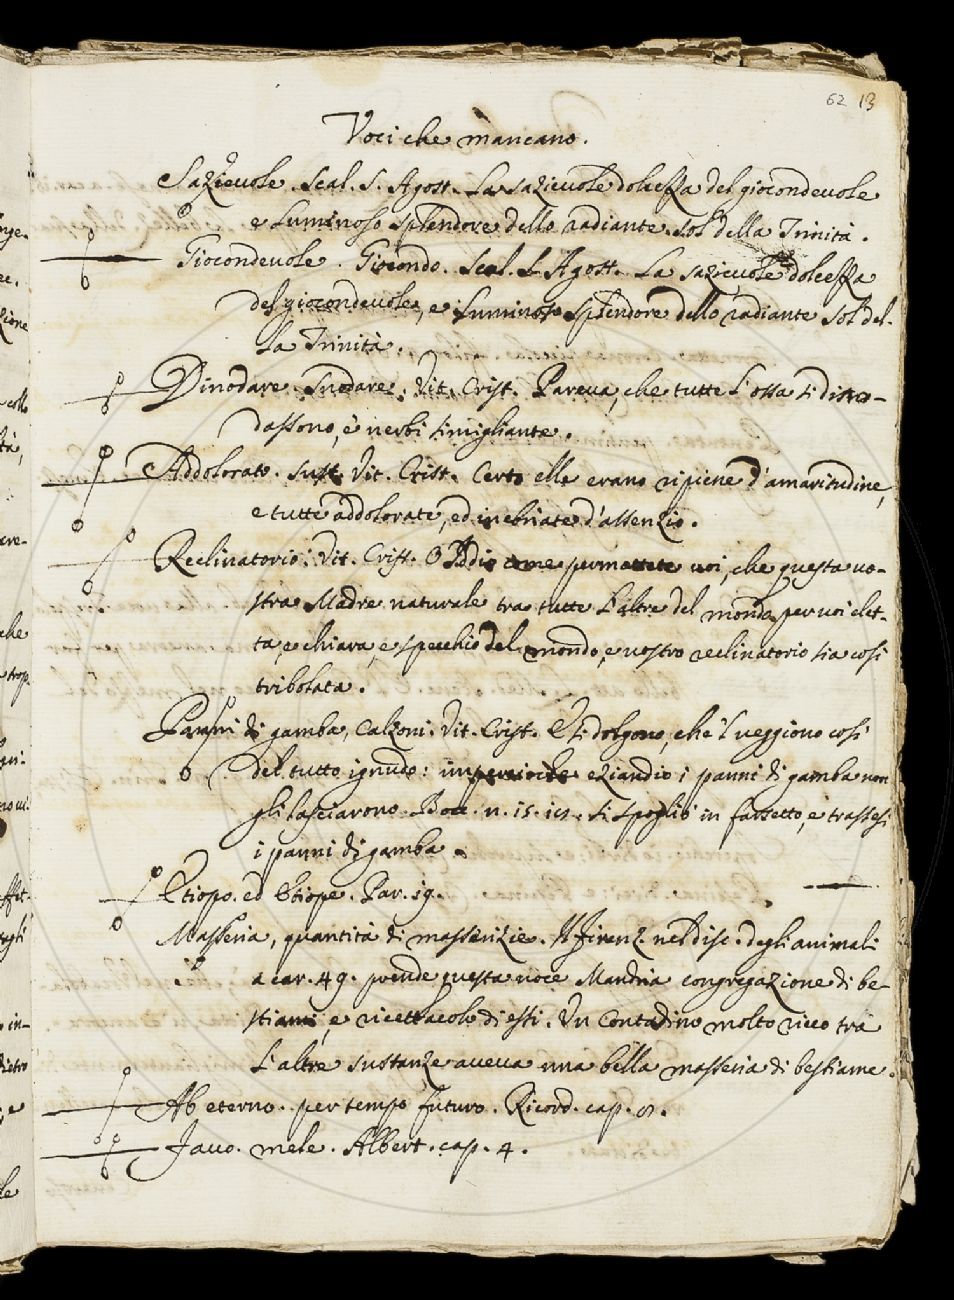 62 13
Voci che mancano.
Sazievole. Scal. S. Agost. La sazievole dolcezza del giocondevole
e luminoso splendore dello radiante sol della Trinità.
Giocondevole. Giocondo. Scal. S. Agost. La sazievole dolcezza
del giocondevole, e luminoso splendore dello radiante Sol del-
la Trinità.
Dinodare. Snodare. Vit. Crist. Pareva, che tutte l'ossa si dino-
dassono, e nerbi simigliante.
Addolorato. sust. Vit. Crist. Certo elle erano ripiene d'amaritudine,
e tutte addolorate, ed inebriate d'assenzio.
Reclinatorio. Vit. Crist. O Iddio come permettete voi, che questa vo-
stra Madre naturale tra tutte l'altre del mondo per voi elet-
ta, e chiara, e specchio del mondo, e vostro reclinatorio sia così
tribolata.
Panni di gamba, Calzoni. Vit. Crist. E si dolgono, che 'l veggiono così
del tutto ignudo: imperciocchè eziandio i panni di gamba non
gli lasciarono. Bocc. n. 15. Si spogliò in farsetto, e trassesi
i panni di gamba.
Etiopo. ed Etiope. Par. 19.
Masseria, quantità di masserizie. Firenz. nel disc. degli animali
a car. 49. prende questa voce Mandria congregazione di be-
stiami, e ricettacolo di essi. Un Contadino molto ricco tra
l'altre sustanze aveva una bella masseria di bestiame.
Ab eterno. per tempo futuro. Ricord. cap.
mele. Albert. cap. 4.